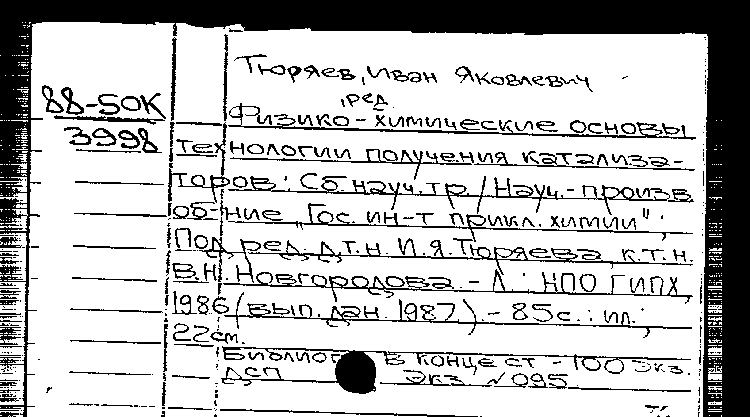 Тюряев, Иван Яковлевич
, ред.
88-5ОК
3998
Физико-химические основы
технологии получения катализа-
торов: Сб. науч. тр. / Науч.-произв.
об-ние „Гос. ин-т прикл. химии";
Под ред. д.т.н. И.Я. Тюряева, к.т.н.
В.Н. Новгородова. - Л.: НПО ГИПХ,
1986 (вып. дан. 1987). - 85 с.: ил.;
22 см.
в конце ст. - 100 экз.
ДСП Экз. №095